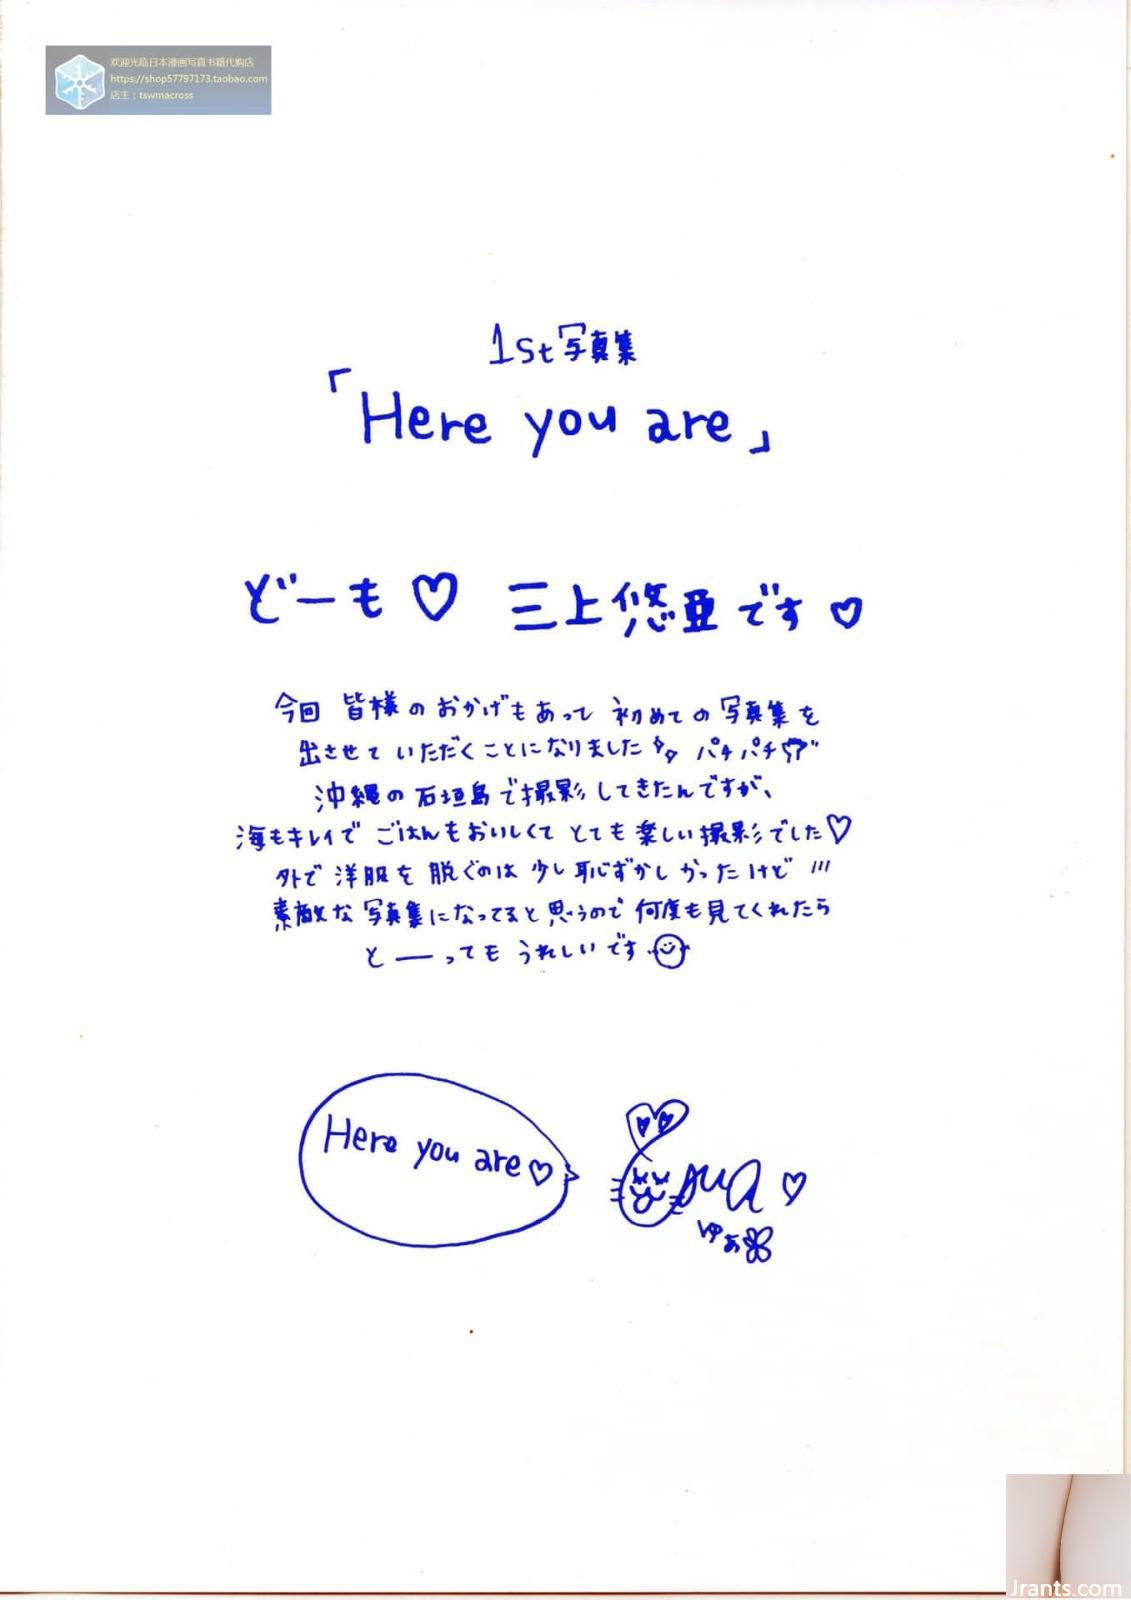 欢迎光临日本漫画写真书籍代购店
https://shop57797173.taobao.com
店主：tswmacross
1St写真集
「Here you are」
どーも♡ 三上悠亜です♡
今回 皆様のおかげもあって 初めての写真集を
出させていただくことになりました パチパチ
沖縄の石垣島で撮影してきたんですが、
海もキレイで ごはんもおいしくて とても楽しい撮影でした♡
外で洋服を脱ぐのは少し恥ずかしかったけど !!!
素敵な写真集になってると思うので何度も見てくれたら
と――ってもうれしいです
Here you are♡
Yua♡
ゆあ
Jrants.com